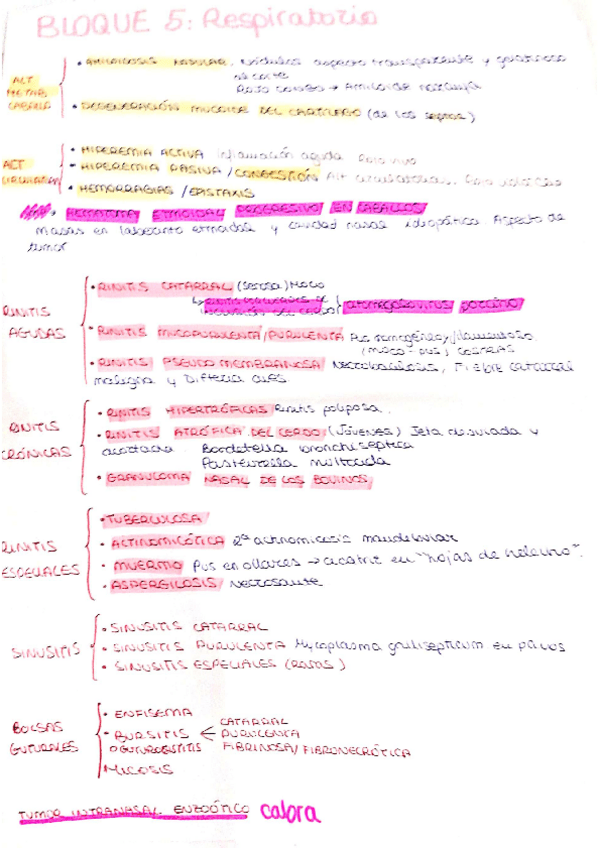 BLOQUE 5: Respiratorio
• AMILOIDOSIS NASULAR. Nódulos aspecto transparente y gelatinoso
ALT
al corte
METAB.
Rojo congo → Amiloide naranja
• DEGENERACIÓN MUCOIDE DEL CARTILAGO (de los septos)
• HIPEREMIA ACTIVA inflamación aguda Rojo vivo
ALT
• HIPEREMIA PASIVA / CONGESTIÓN Alt circulatorias. Rojo
CIRCULATORIAS
• HEMORRAGIAS / EPISTAXIS
HEMATOMA ETMOIDAL PROGRESIVO EN CABALLOS
Masas en laberinto etmoidal y cavidad nasal idiopática. Aspecto de
tumor
• RINITIS CATARRAL (serosa) Moco
RINITIS
INCLUSIÓN DEL CERDO } citomegalovirus porcino
AGUDAS
• RINITIS MUCOPURULENTA / PURULENTA Pus homogéneo / filamentoso
(moco + pus) costras
• RINITIS PSEUDOMEMBRANOSA Necrobacilosis, Fiebre catarral
maligna y Difteria aves
• RINITIS HIPERTRÓFICAS Rinitis poliposa.
RINITIS
• RINITIS ATRÓFICA DEL CERDO (Jóvenes) Jeta desviada y
CRÓNICAS
acortada. Bordetella bronchiseptica
Pasteurella multocida
• GRANULOMA NASAL DE LOS BOVINOS
• TUBERCULOSA
RINITIS
• ACTINOMICÓTICA 2ª actinomicosis mandibular
ESPECIALES
• MUERMO Pus en ollares → cicatriz en "hojas de helecho".
• ASPERGILOSIS Necrosante
• SINUSITIS CATARRAL
SINUSITIS
• SINUSITIS PURULENTA Mycoplasma gallisepticum en pavos
• SINUSITIS ESPECIALES
• ENFISEMA
BOLSAS
CATARRAL
GUTURALES
• BURSITIS < PURULENTA
O GUTUROCISTITIS FIBRINOSA / FIBRONECRÓTICA
MICOSIS
TUMOR INTRANASAL ENZOÓTICO cabra